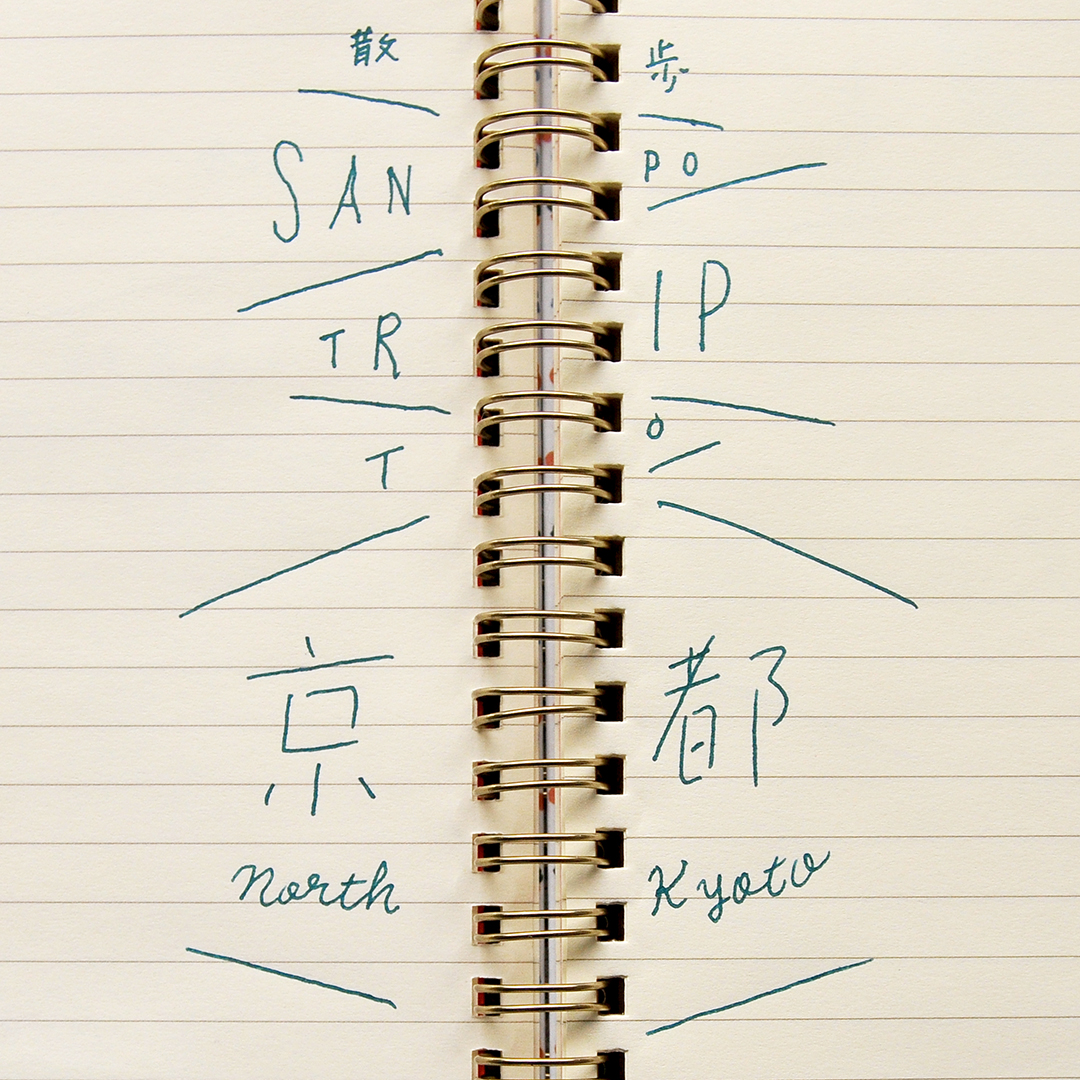 散 歩
SAN PO
TR IP
T O
京 都
North Kyoto